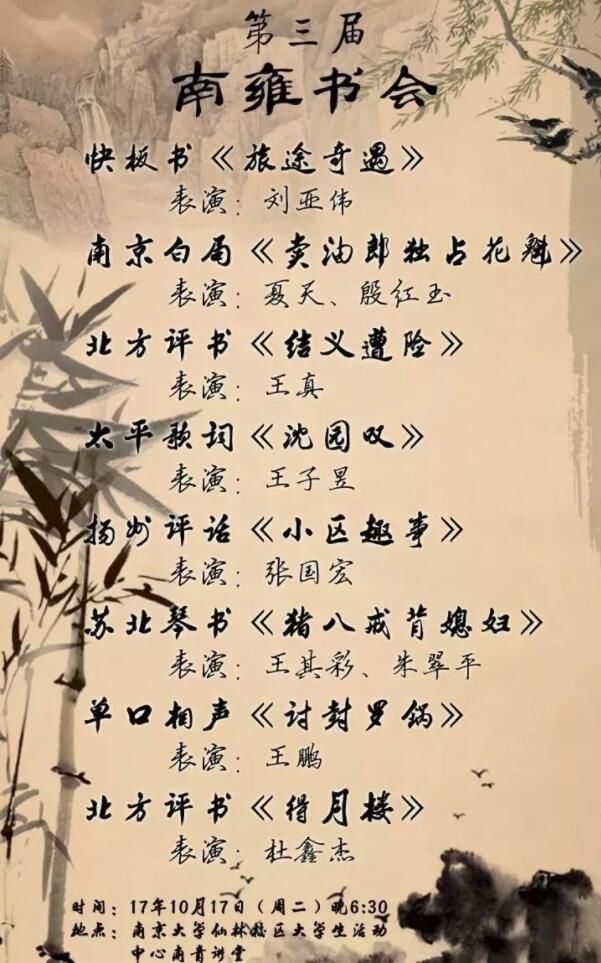 第三届
南雍书会
快板书《旅途奇遇》
表演：刘亚伟
南京白局《卖油郎独占花魁》
表演：夏天、殷红玉
北方评书《结义遭险》
表演：王真
太平歌词《沈园叹》
表演：王子昱
扬州评话《小区趣事》
表演：张国宏
苏北琴书《猪八戒背媳妇》
表演：王其彩、朱翠平
单口相声《讨封罗锅》
表演：王鹏
北方评书《得月楼》
表演：杜鑫杰
时间：17年10月17日（周二）晚6:30
地点：南京大学仙林校区大学生活动
中心南青讲堂